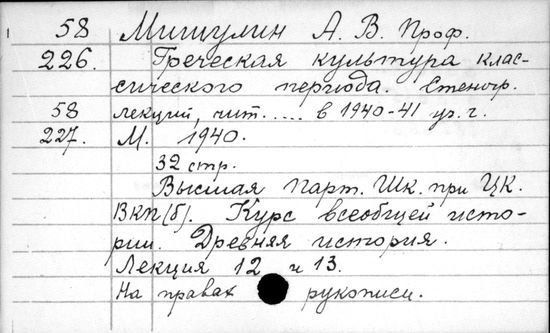 58 Мишулин А. В. Проф.
226. Греческая культура клас-
сического периода. Стеногр.
58 лекций, чит. .... в 1940-41 уч. г.
227. М. 1940.
32 стр.
Высшая Парт. Шк. при ЦК.
ВКП(б). Курс всеобщей исто-
рии. Древняя история.
Лекция 12 и 13.
На правах рукописи.